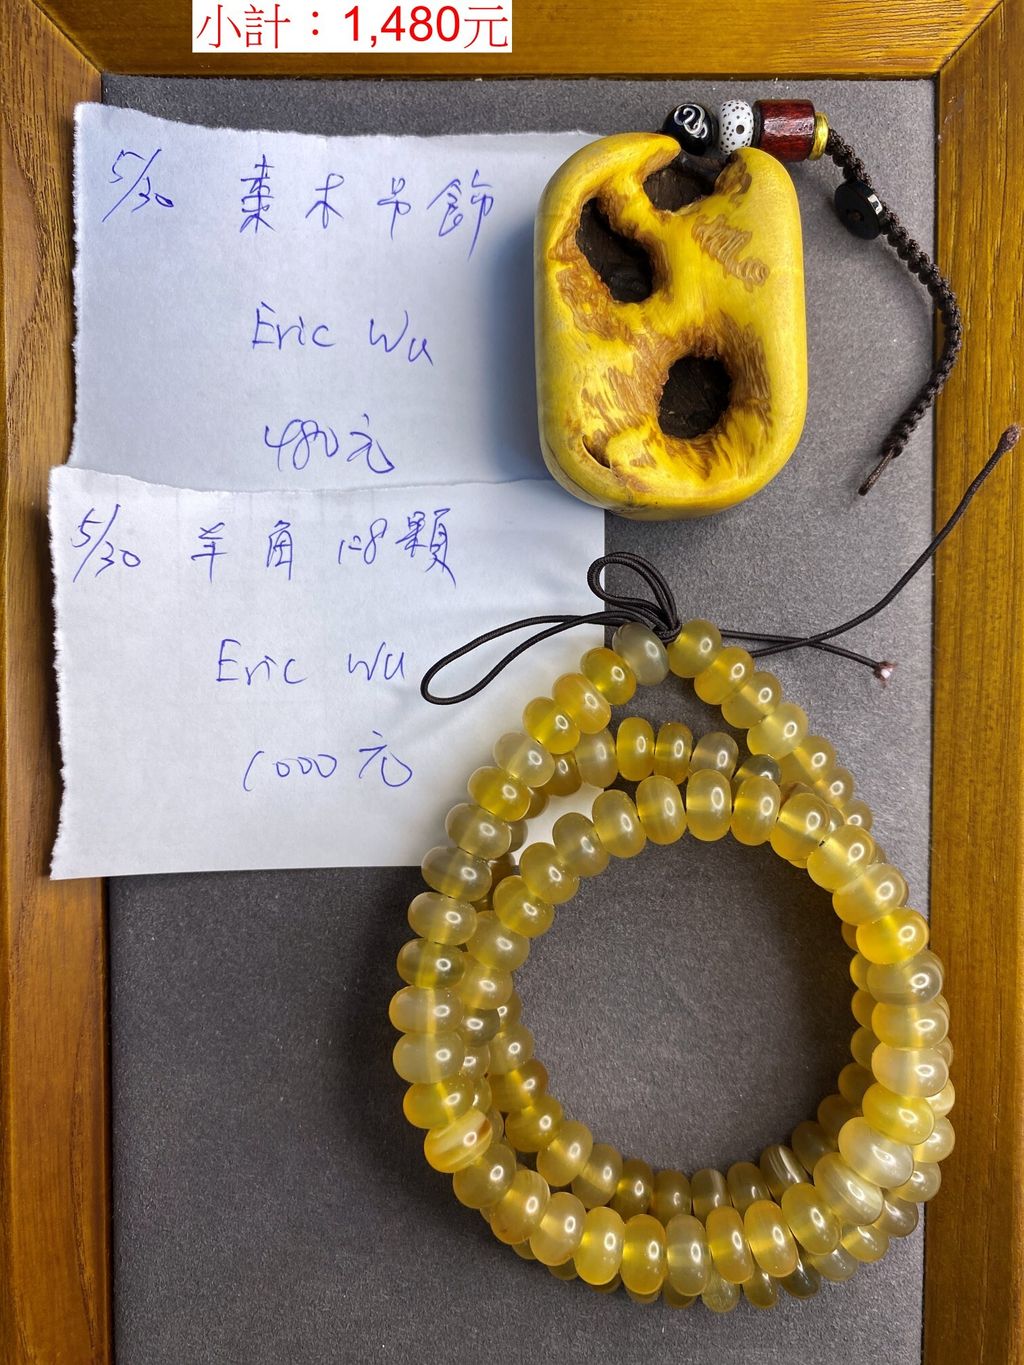 小計：1,480元
5/30 棗木吊飾
Eric Wu
480元
5/30 羊角 108顆
Eric Wu
1000元